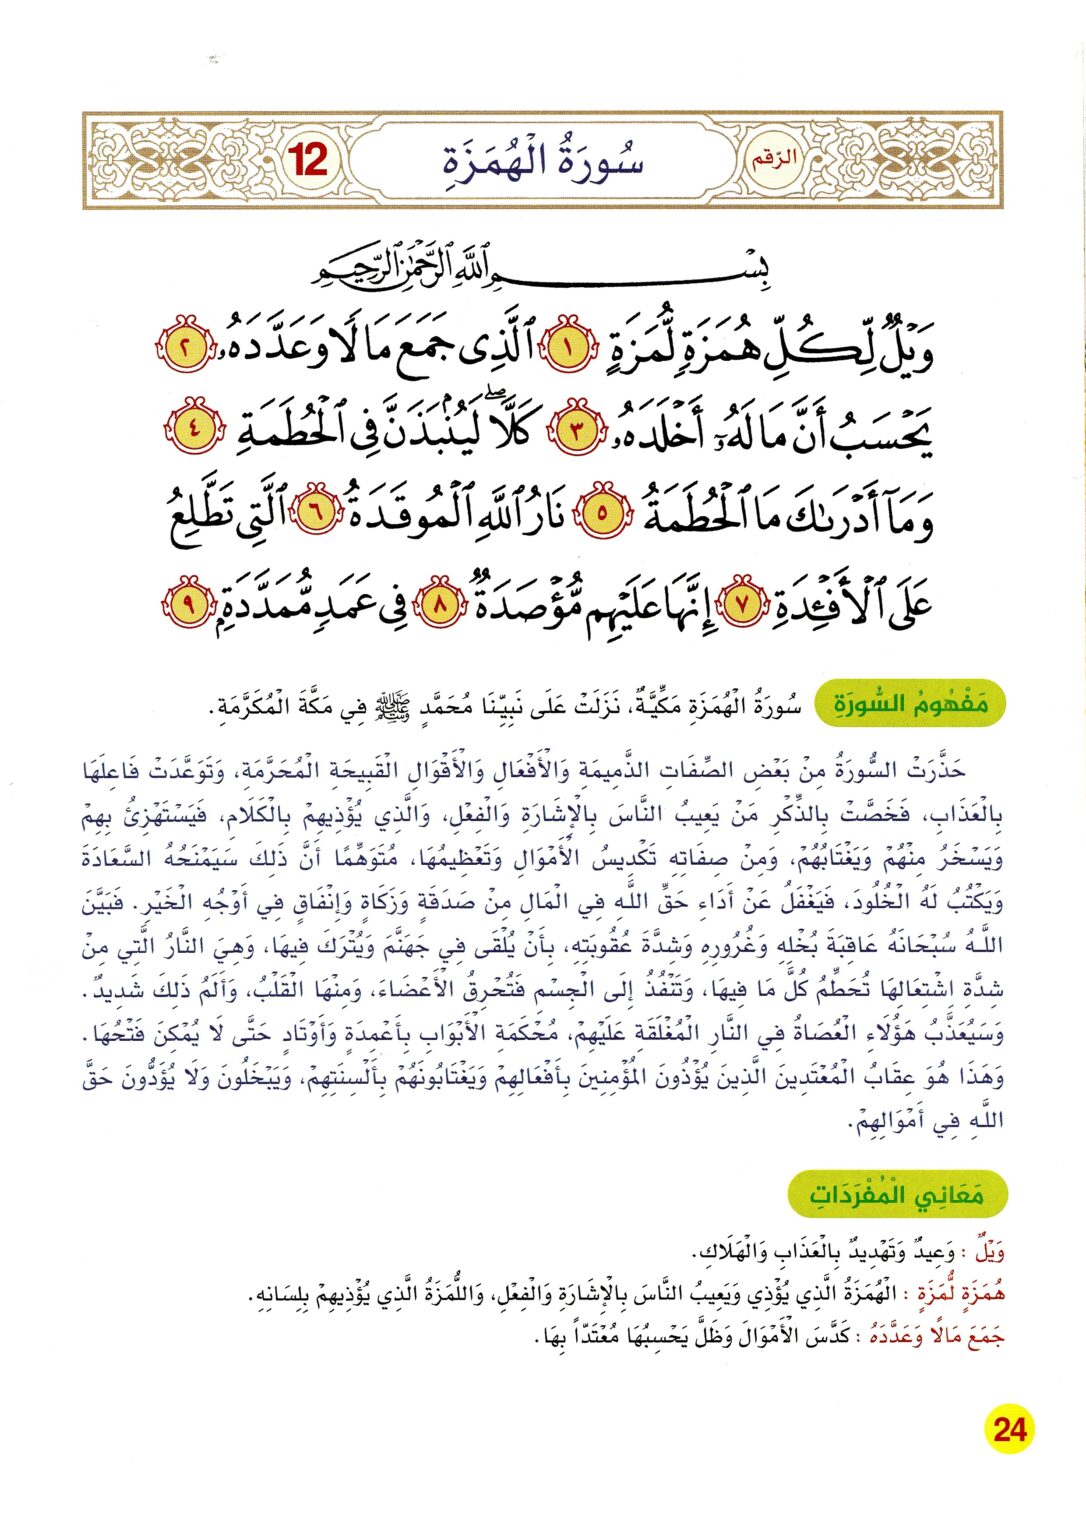 الرّقم سُورَةُ الْهُمَزَةِ 12
بِسْمِ اللَّهِ الرَّحْمَٰنِ الرَّحِيمِ
وَيْلٌ لِّكُلِّ هُمَزَةٍ لُّمَزَةٍ ١ الَّذِي جَمَعَ مَالًا وَعَدَّدَهُۥ ٢
يَحْسَبُ أَنَّ مَالَهُۥٓ أَخْلَدَهُۥ ٣ كَلَّا ۖ لَيُنۢبَذَنَّ فِي الْحُطَمَةِ ٤
وَمَآ أَدْرَىٰكَ مَا الْحُطَمَةُ ٥ نَارُ اللَّهِ الْمُوقَدَةُ ٦ الَّتِي تَطَّلِعُ
عَلَى الْأَفْـِٔدَةِ ٧ إِنَّهَا عَلَيْهِم مُّؤْصَدَةٌ ٨ فِي عَمَدٍ مُّمَدَّدَةٍۭ ٩
مَفْهُومُ السُّورَةِ سُورَةُ الْهُمَزَةِ مَكِّيَّةٌ، نَزَلَتْ عَلَى نَبِيِّنَا مُحَمَّدٍ ﷺ فِي مَكَّةَ الْمُكَرَّمَةِ.
حَذَّرَتْ السُّورَةُ مِنْ بَعْضِ الصِّفَاتِ الذَّمِيمَةِ وَالْأَفْعَالِ وَالْأَقْوَالِ الْقَبِيحَةِ الْمُحَرَّمَةِ، وَتَوَعَّدَتْ فَاعِلَهَا
بِالْعَذَابِ، فَخَصَّتْ بِالذِّكْرِ مَنْ يَعِيبُ النَّاسَ بِالْإِشَارَةِ وَالْفِعْلِ، وَالَّذِي يُؤْذِيهِمْ بِالْكَلَامِ، فَيَسْتَهْزِئُ بِهِمْ
وَيَسْخَرُ مِنْهُمْ وَيَغْتَابُهُمْ، وَمِنْ صِفَاتِهِ تَكْدِيسُ الْأَمْوَالِ وَتَعْظِيمُهَا، مُتَوَهِّمًا أَنَّ ذَلِكَ سَيَمْنَحُهُ السَّعَادَةَ
وَيَكْتُبُ لَهُ الْخُلُودَ، فَيَغْفَلُ عَنْ أَدَاءِ حَقِّ اللَّهِ فِي الْمَالِ مِنْ صَدَقَةٍ وَزَكَاةٍ وَإِنْفَاقٍ فِي أَوْجُهِ الْخَيْرِ. فَبَيَّنَ
اللَّهُ سُبْحَانَهُ عَاقِبَةَ بُخْلِهِ وَغُرُورِهِ وَشِدَّةَ عُقُوبَتِهِ، بِأَنْ يُلْقَى فِي جَهَنَّمَ وَيُتْرَكَ فِيهَا، وَهِيَ النَّارُ الَّتِي مِنْ
شِدَّةِ اشْتِعَالِهَا تُحَطِّمُ كُلَّ مَا فِيهَا، وَتَنْفُذُ إِلَى الْجِسْمِ فَتُحْرِقُ الْأَعْضَاءَ، وَمِنْهَا الْقَلْبُ، وَأَلَمُ ذَلِكَ شَدِيدٌ.
وَسَيُعَذَّبُ هَؤُلَاءِ الْعُصَاةُ فِي النَّارِ الْمُغْلَقَةِ عَلَيْهِمْ، مُحْكَمَةِ الْأَبْوَابِ بِأَعْمِدَةٍ وَأَوْتَادٍ حَتَّى لَا يُمْكِنَ فَتْحُهَا.
وَهَذَا هُوَ عِقَابُ الْمُعْتَدِينَ الَّذِينَ يُؤْذُونَ الْمُؤْمِنِينَ بِأَفْعَالِهِمْ وَيَغْتَابُونَهُمْ بِأَلْسِنَتِهِمْ، وَيَبْخَلُونَ وَلَا يُؤَدُّونَ حَقَّ
اللَّهِ فِي أَمْوَالِهِمْ.
مَعَانِي الْمُفْرَدَاتِ
وَيْلٌ : وَعِيدٌ وَتَهْدِيدٌ بِالْعَذَابِ وَالْهَلَاكِ.
هُمَزَةٍ لُّمَزَةٍ : الْهُمَزَةُ الَّذِي يُؤْذِي وَيَعِيبُ النَّاسَ بِالْإِشَارَةِ وَالْفِعْلِ، وَاللُّمَزَةُ الَّذِي يُؤْذِيهِمْ بِلِسَانِهِ.
جَمَعَ مَالًا وَعَدَّدَهُ : كَدَّسَ الْأَمْوَالَ وَظَلَّ يَحْسِبُهَا مُعْتَدّاً بِهَا.
24